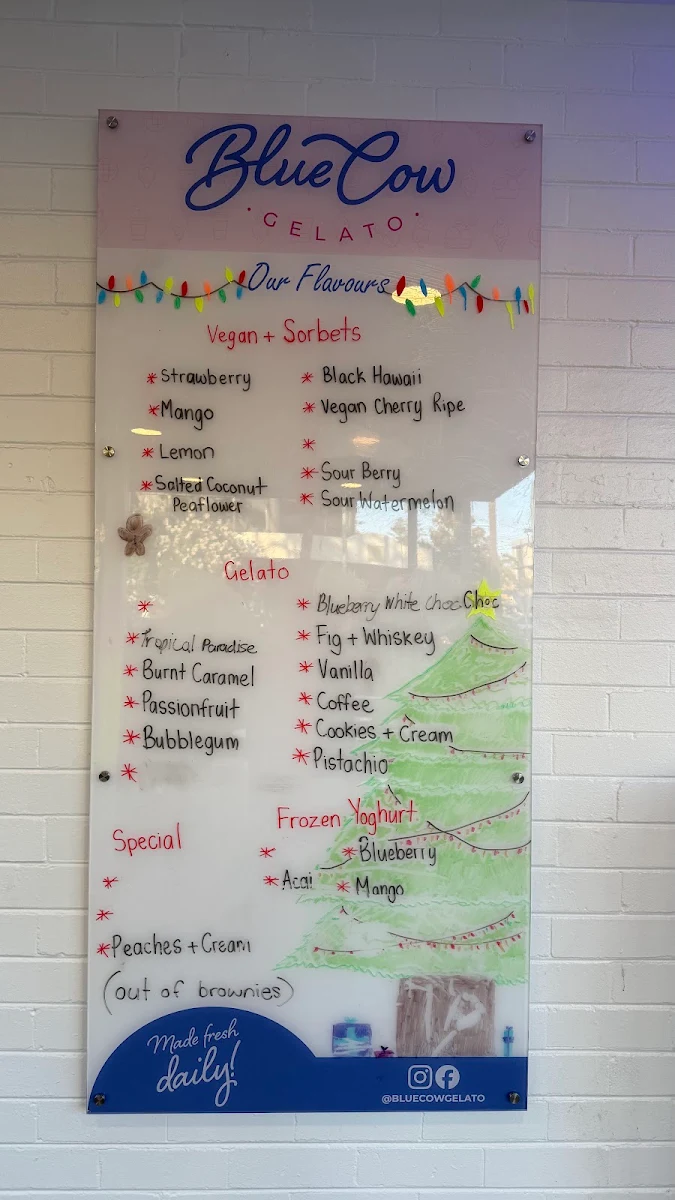 Blue Cow
GELATO
Our Flavours
Vegan + Sorbets
* Strawberry
* Mango
* Lemon
* Salted Coconut
Peaflower
* Black Hawaii
* Vegan Cherry Ripe
*
* Sour Berry
* Sour Watermelon
Gelato
*
* Tropical Paradise
* Burnt Caramel
* Passionfruit
* Bubblegum
*
* Blueberry White Choc Choc
* Fig + Whiskey
* Vanilla
* Coffee
* Cookies + Cream
* Pistachio
Special
*
*
* Peaches + Cream
(out of brownies)
Frozen Yoghurt
*
* Acai
* Blueberry
* Mango
Made fresh
daily!
@BLUECOWGELATO